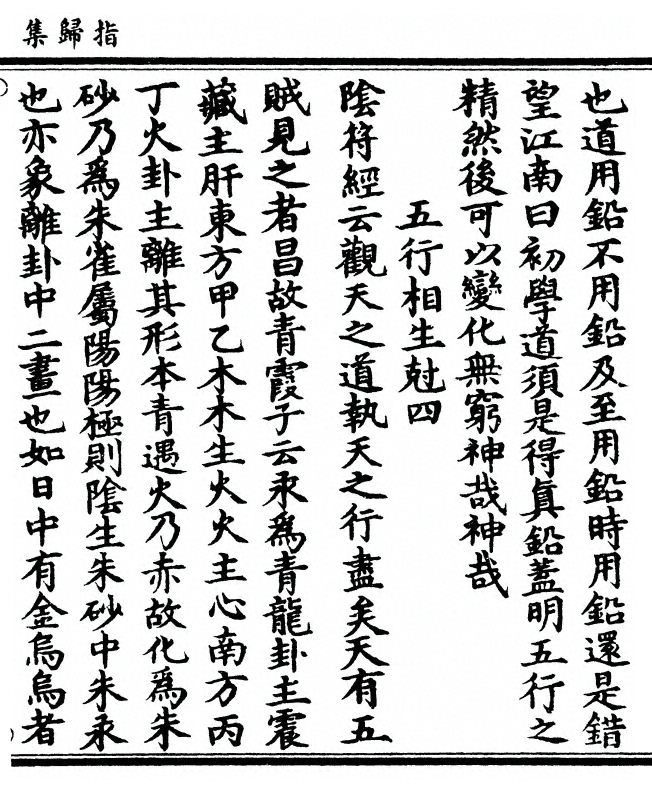 指歸集
也道用鉛不用鉛及至用鉛時用鉛還是錯
望江南曰初學道須是得眞鉛蓋明五行之
精然後可以變化無窮神哉神哉
五行相生尅四
陰符經云觀天之道執天之行盡矣天有五
賊見之者昌故青霞子云汞爲青龍卦主震
藏主肝東方甲乙木木生火火主心南方丙
丁火卦主離其形本青遇火乃赤故化爲朱
砂乃爲朱雀屬陽陽極則陰生朱砂中朱汞
也亦象離卦中二畫也如日中有金烏烏者